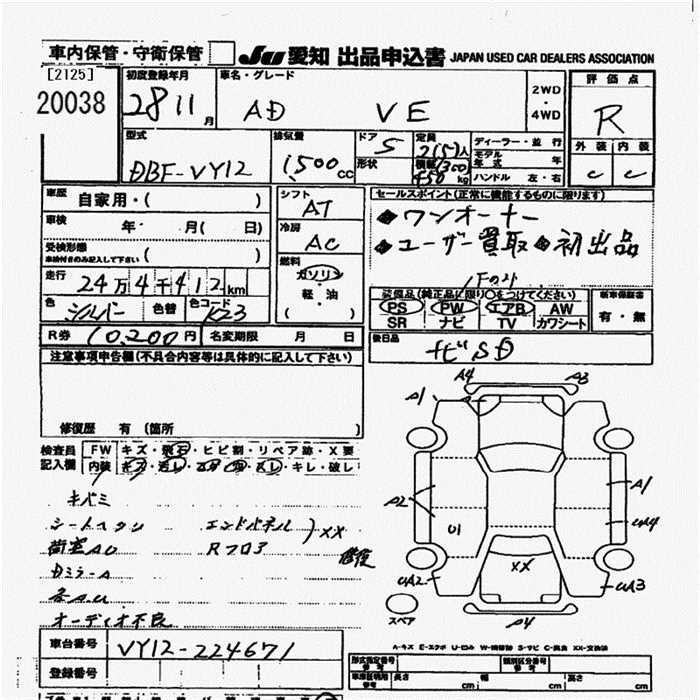 車内保管・守衛保管 JU 愛知 出品申込書 JAPAN USED CAR DEALERS ASSOCIATION
[2125] 初度登録年月 車名・グレード 評価点
20038 28 11月 AD VE 2WD・4WD R
型式 排気量 ドア 定員 ディーラー・並行 外装 内装
DBF-VY12 1500cc 5 2(5)人 モデル年式 年 C C
形状 積載(300) 450kg ハンドル 左・右
車歴 自家用・( ) シフト セールスポイント(正常に機能するものに限ります)
車検 年 月( 日) AT ◆ワンオーナー
受検形態 冷房 ◆ユーザー買取 ◆初出品
車検付きのみ記入して下さい ( ) AC
走行 24万4千412km 燃料 ガソリン
色 シルバー 色替 色コード K23 軽・油 ( )
装備品(純正品に限り○をつけてください) 新車保証書
PS PW エアB AW 有・無
SR ナビ TV カワシート
R券 10,200円 名変期限 月 日 後日品
ナビSD
注意事項申告欄(不具合内容等は具体的に記入して下さい)
修復歴 有 (箇所 )
検査員 FW キズ・飛石・ヒビ割・リペア跡・X要
記入欄 内装
キバミ
シートスタン エンドパネル )XX
荷室AU Rフロア 修復
DミラーA
オーディオ不良
A4 A3
A1
A2 A1
U1 UA4
XX
UA2 UA3
A4
スペア
A-キズ E-エクボ U-凹み W-補修跡 S-サビ C-腐食 XX-交換済
車台番号 VY12-224671
登録番号
形式指定番号 類別区分番号
長さ cm 幅 cm 高さ cm